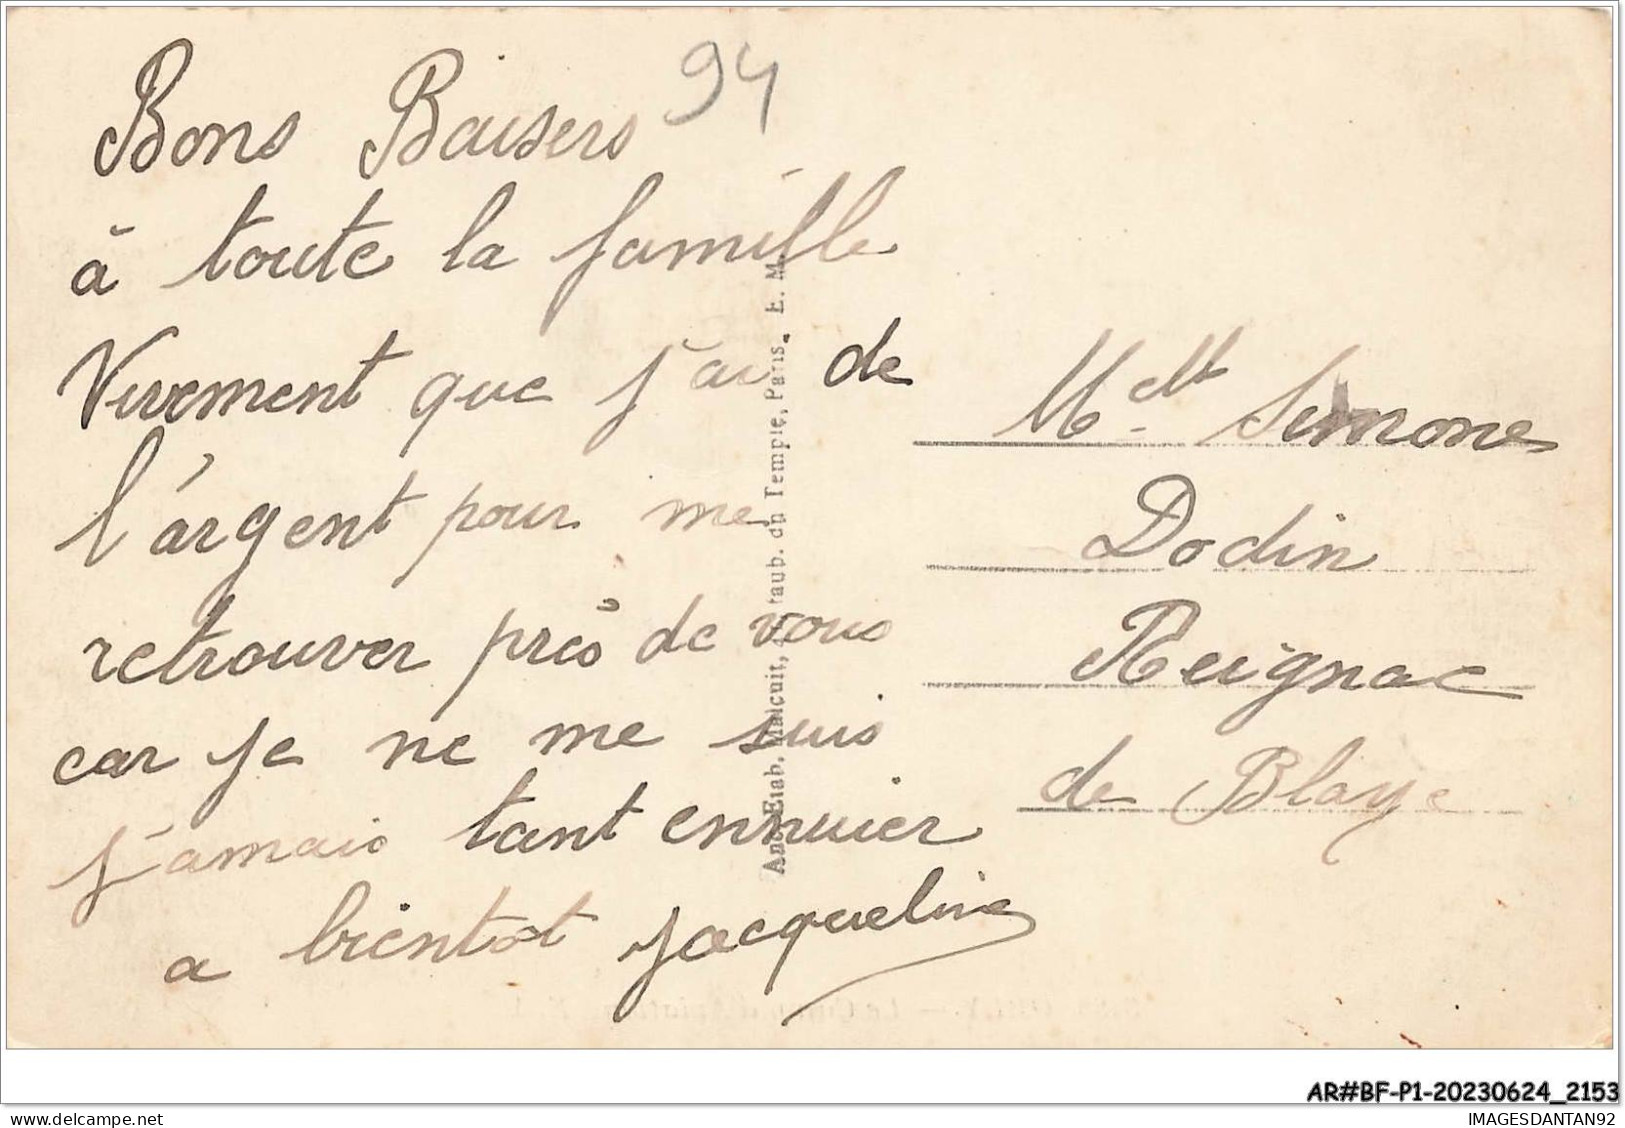 94
Bons Baisers
à toute la famille
Vivement que j'ai de
l'argent pour me
retrouver près de vous
car je ne me suis
j'amais tant ennuier
a bientot Jacqueline
Anc. Etab. Malcuit, taub. du Temple, Paris. E. M.
Melle Simone
Dodin
Reignac
de Blaye
AR#BF-P1-20230624_2153
IMAGESDANTAN92